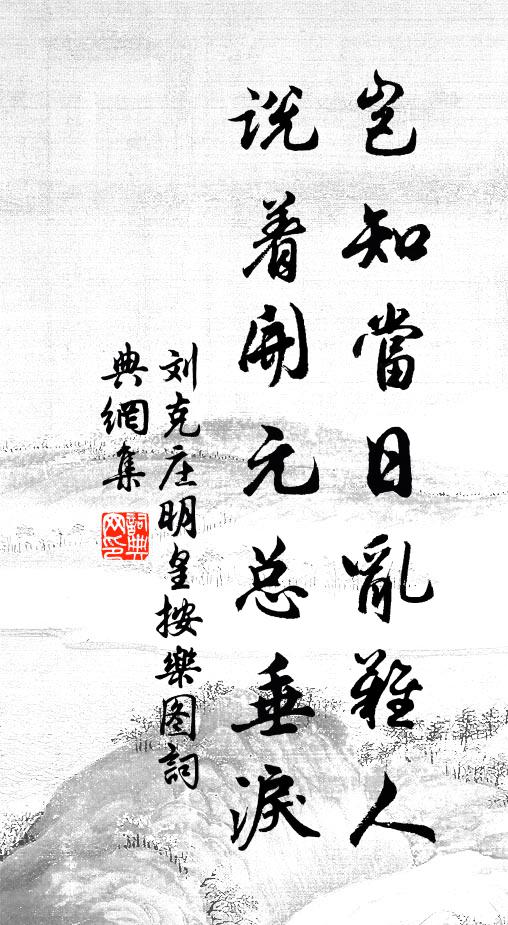 豈知當日亂離人
說着開元总垂淚
刘克庄明皇按樂图詞
典網集
詞典